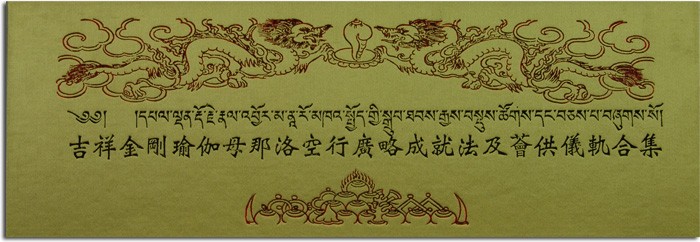 ༄༅། །དཔལ་ལྡན་རྡོ་རྗེ་རྣལ་འབྱོར་མ་ནཱ་རོ་མཁའ་སྤྱོད་ཀྱི་སྒྲུབ་ཐབས་རྒྱས་བསྡུས་ཚོགས་དང་བཅས་པ་བཞུགས་སོ།
吉祥金剛瑜伽母那洛空行廣略成就法及薈供儀軌合集